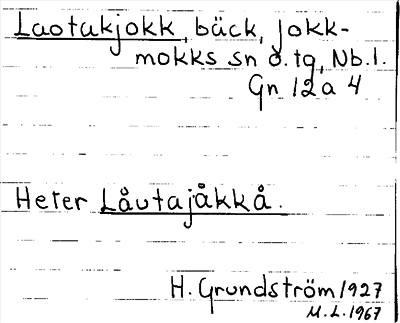 Laotakjokk, bäck, Jokk-
mokks sn o. tg, Nb.l.
Gn 12a 4
Heter Låutajåkkå.
H. Grundström 1927
M.L. 1967